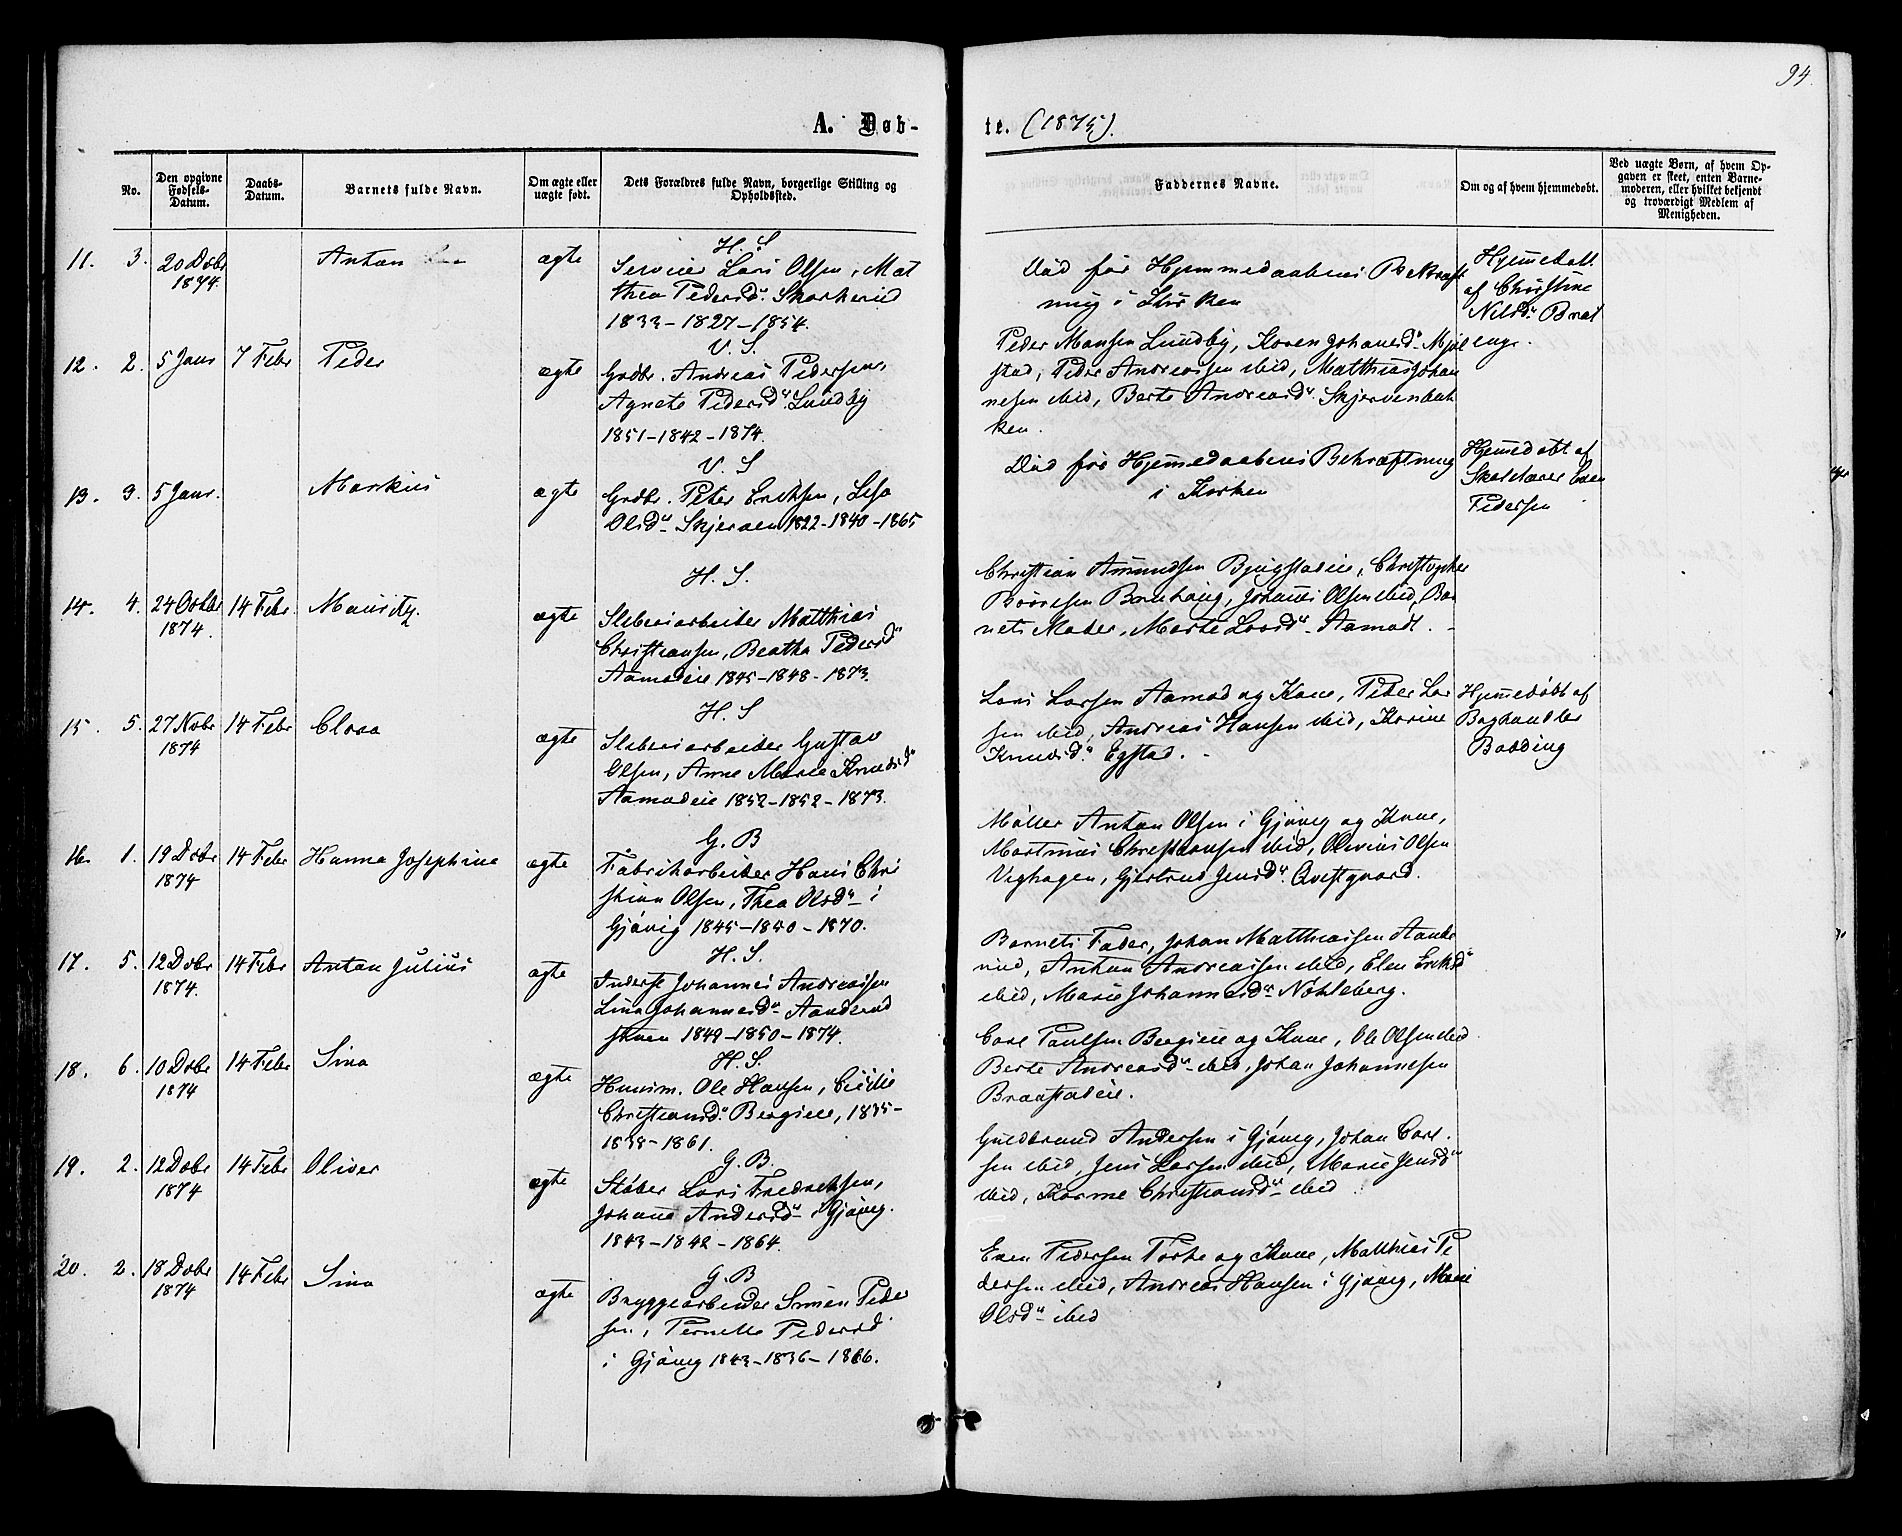 94.
A. Døb-
te. (1875).
No.
Den opgivne Fødsels-Datum.
Daabs-Datum.
Barnets fulde Navn.
Om ægte eller uægte født.
Dets Forældres fulde Navn, borgerlige Stilling og Opholdssted.
Faddernes Navne.
Om og af hvem hjemmedøbt.
Ved uægte Børn, af hvem Opgaven er skeet, enten Barnemoderen, eller hvilket bekjendt og troværdigt Medlem af Menigheden.
11. 3. 20 Dcbr 1874. Anton ægte
H. S
Lars Olsen, Mat
thea Pedersd.
1833-1827-1854.
Død før Hjemmedaabens Bekræft
ning i Kirken
Hjemedøbt
af Christine
Nilsd. Bræt
enge.
12. 2. 5 Janr 7 Febr Peder ægte
V. S.
Grdbr. Andreas Pedersen,
Agnete Pedersd. Lundby
1851-1842-1874.
Peder Monsen Lundby, Karen Johansd. Mjøl
stad, Peder Andreassen ibid, Matthias Johan
nesen ibid, Berte Andreasd. Skjervenbak
ken.
13. 3. 5 Janr. Markus ægte
V. S
Grdbr. Peter Eriksen, Lisa
Olsd. Skjerven 1822-1840-1865
Død før Hjemmedaabens Bekræftning
i Kirken
Hjemedøbt af
Skolelærer Even
Pedersen
14. 4. 24 Octbr 1874. 14 Febr. Mauritz. ægte
H. S.
Sliberiarbeider Matthias
Christiansen, Beatha Pedersd
Aamodeie 1845-1848-1873.
Christian Amundsen Bjugstadeie, Christopher
Børresen Bonhaug, Johannes Olsen ibid, Bar
nets Moder, Marte Larsd. Aamodt.
15. 5. 27 Nvbr 1874 14 Febr Clara ægte
H. S
Sliberiarbeider Gustav
Olsen, Anne Marie Knudsd
Aamodeie 1852-1852-1873.
Lars Larsen Aamod og Kone, Peder Lar
sen ibid, Andreas Hansen ibid, Karine
Knudsd. Egstad.
Hjemedøbt af
Boghandler
Bødding
16. 1. 19 Dcbr 1874 14 Febr Hanna Josephine ægte
G. B
Fabrikarbeider Hans Chri
stian Olsen, Thea Olsd. i
Gjøvig 1845-1850-1870.
Møller Anton Olsen i Gjøvig og Kone,
Martinus Christiansen ibid, Olevius Olsen
Veghagen, Gjertrud Jensd. Qvistgaard.
17. 5. 12 Dcbr 1874. 14 Febr Anton Julius ægte
H. S.
Inderst Johannes Andreassen
Lina Johannesd. Aandsrud
stuen 1849-1850-1874.
Barnets Fader, Johan Matthiassen Aands
rud, Anton Andreassen ibid, Elen Eriksd
ibid, Marie Johannesd. Nøkleberg.
18. 6. 10 Dcbr 1874 14 Febr Sina ægte
H. S.
Huusm. Ole Hansen, Cicilie
Christiansd. Bergeie, 1835-
1838-1861.
Carl Paulsen Bergeie og Kone, Ole Olsen ibid
Berte Andreasd. ibid, Johan Johannesen
Braastadeie.
19. 2. 12 Dcbr 1874 14 Febr Oliver ægte
G. B.
Støber Lars Fredriksen,
Johanne Andersd. i Gjøvig.
1843-1842-1864.
Guldbrand Andersen i Gjøvig, Johan Carl
sen ibid, Jens Larsen ibid, Marie Jensd
ibid, Karine Christiansd. ibid
20. 2. 18 Dcbr 1874 14 Febr Sina ægte
G. B
Bryggearbeider Simen Peder
sen, Pernelle Pedersd
i Gjøvig 1843-1836-1866.
Even Pedersen Tørke og Kone, Matthias Pe
dersen ibid, Andreas Hansen i Gjøvig, Marie
Olsd. ibid